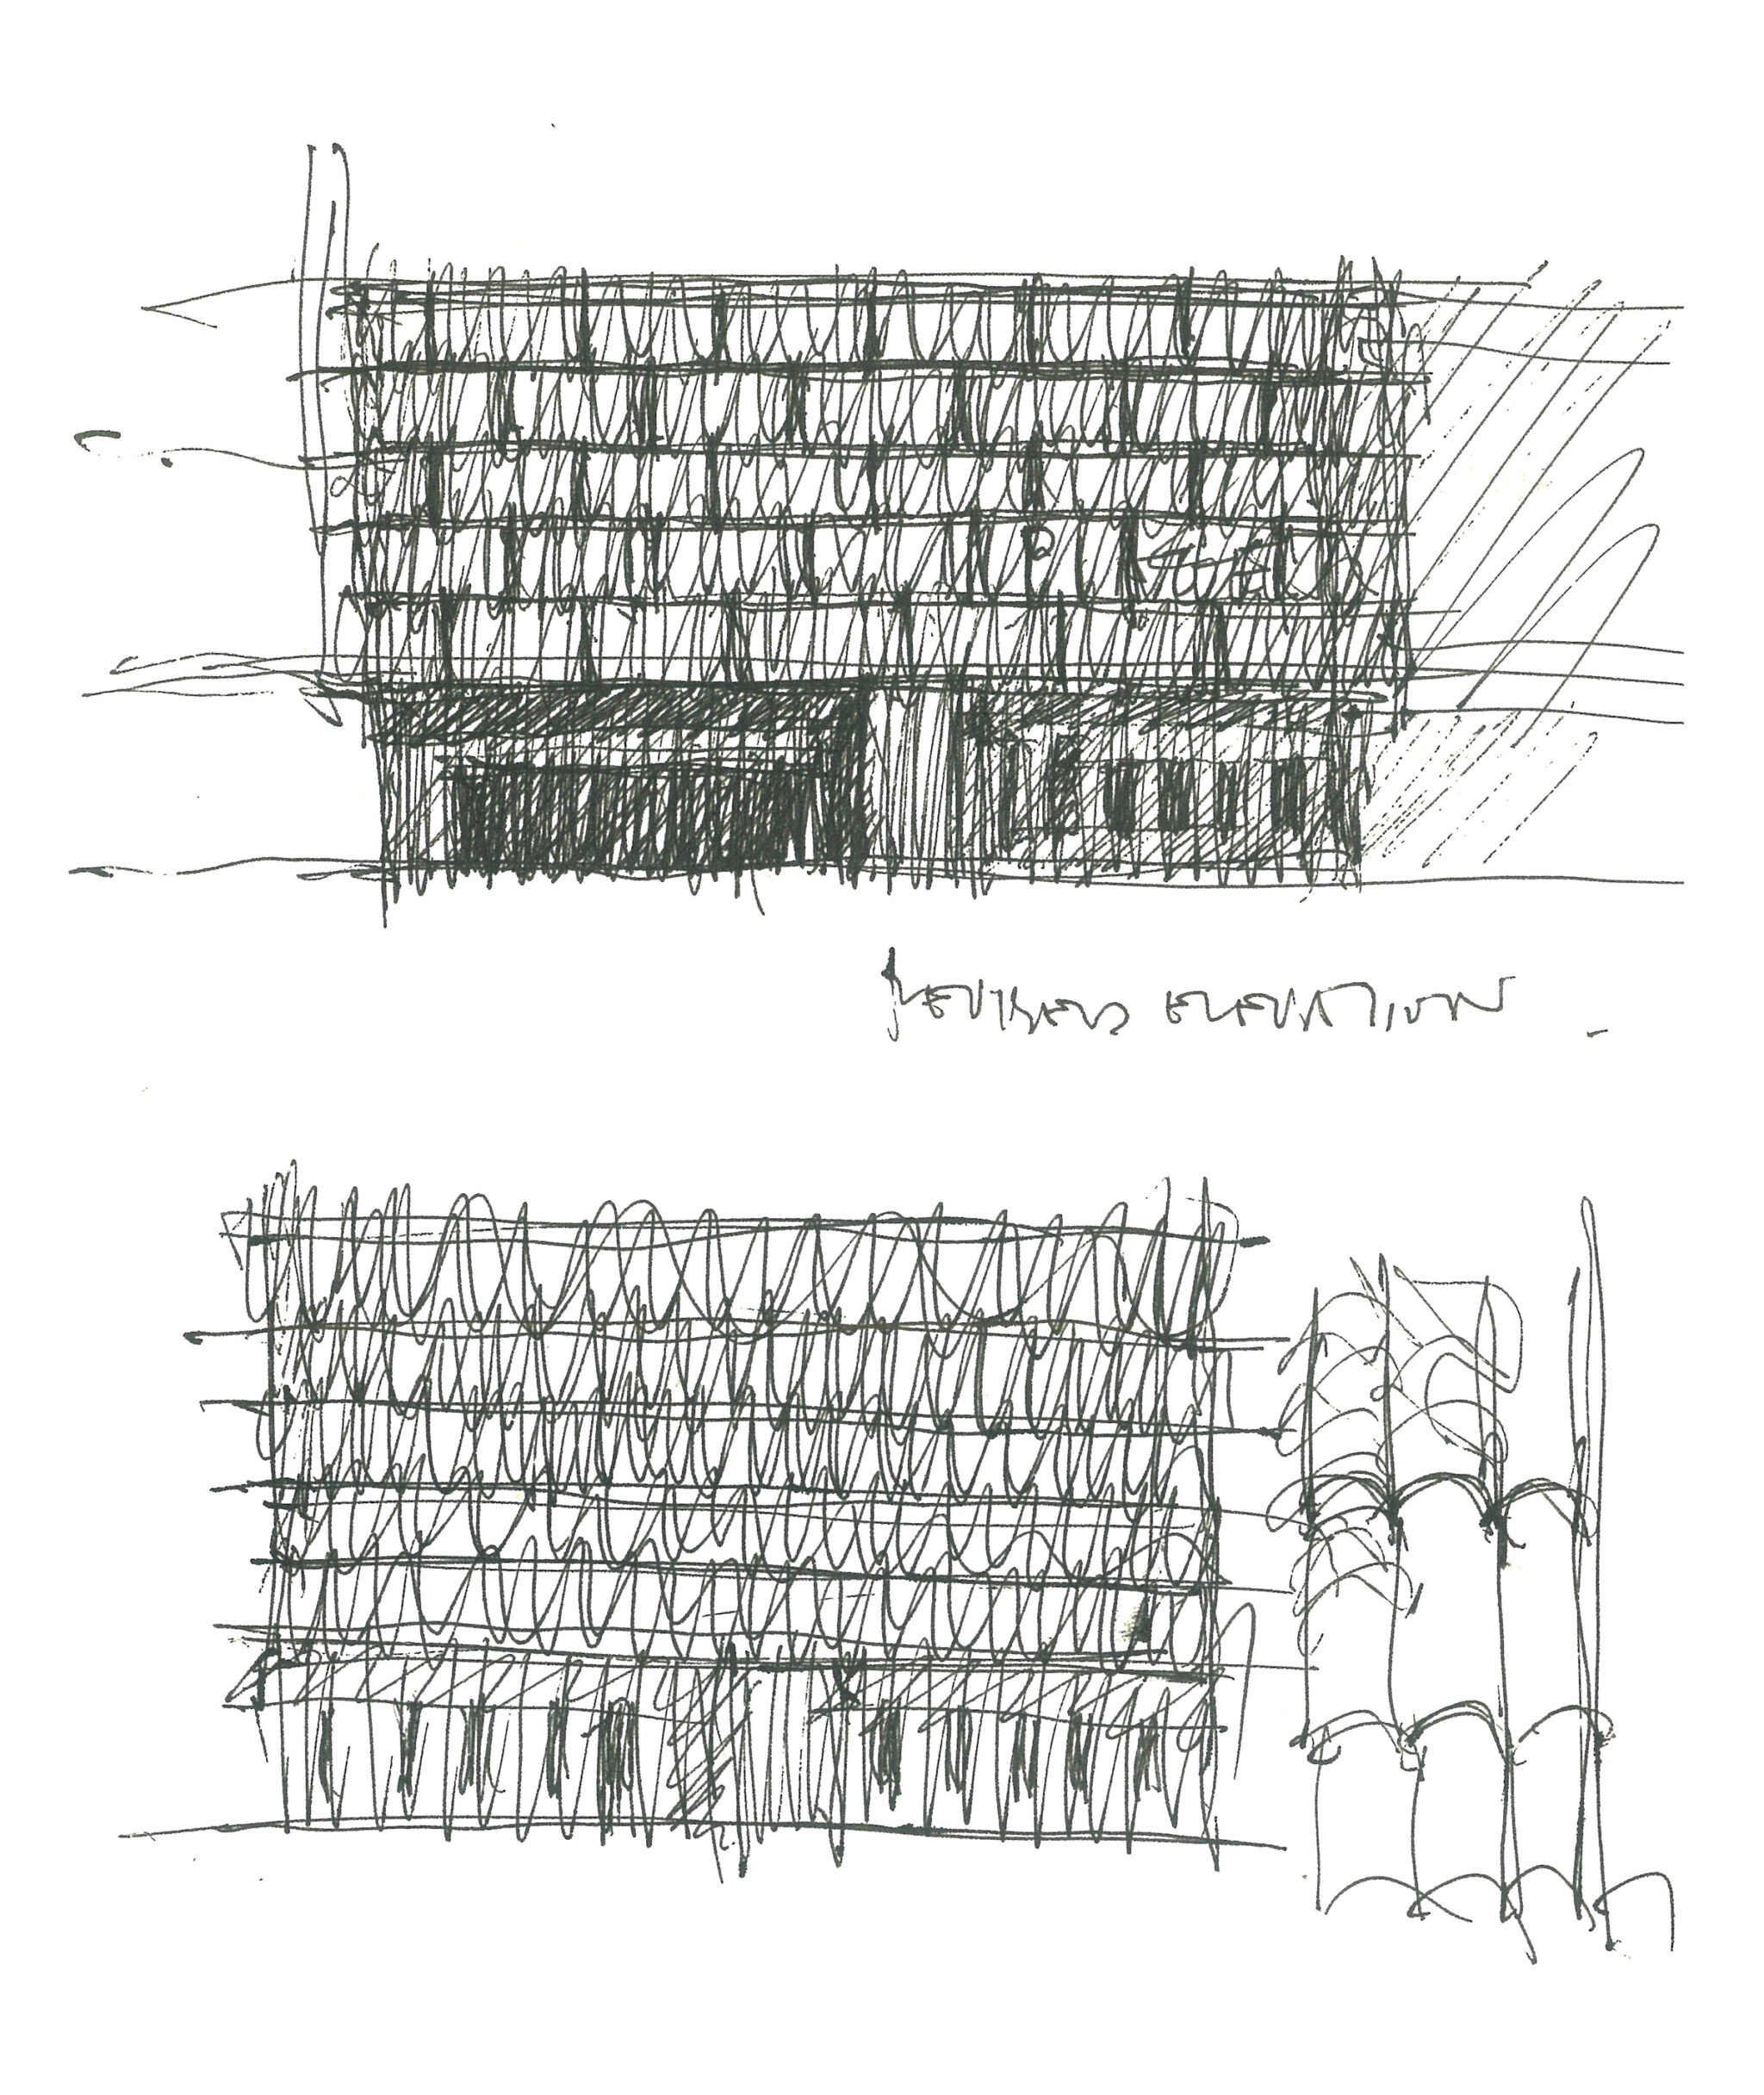 REVISED ELEVATION